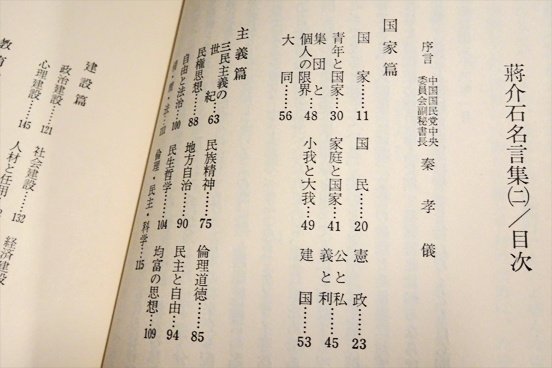 蔣介石名言集㈡/目次
序言 中国国民党中央
委員会副秘書長 秦 孝 儀
国家篇
国 家……11 国 民……20 憲 政……23
青年と国家……30 家庭と国家……41 公と私
義と利……45
集団と
個人の限界……48 小我と大我……49 建 国……53
大 同……56
主義篇
三民主義の
世 紀……63 民族精神……75 倫理道徳……85
民権思想……88 地方自治……90 民主と自由……94
自由と法治……100 民生哲学……104 均富の思想……109
倫理・民主・科学……115
建設篇
政治建設……121 社会建設……132 経済建設
心理建設……145 人材と任用